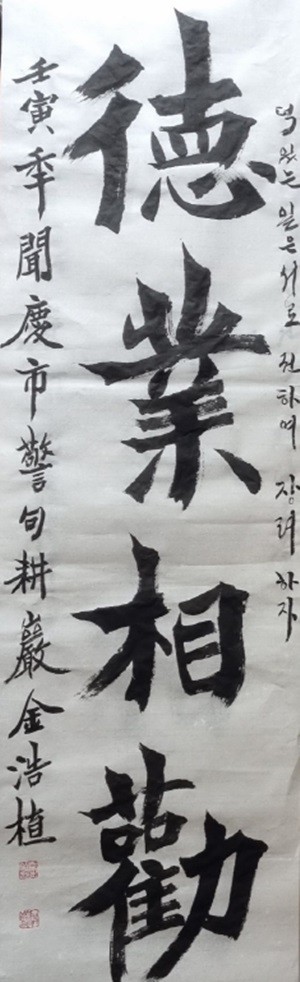 덕 있는 일은 서로 권하여 장려 하자
德業相勸
壬寅年聞慶市警句耕巖金浩植